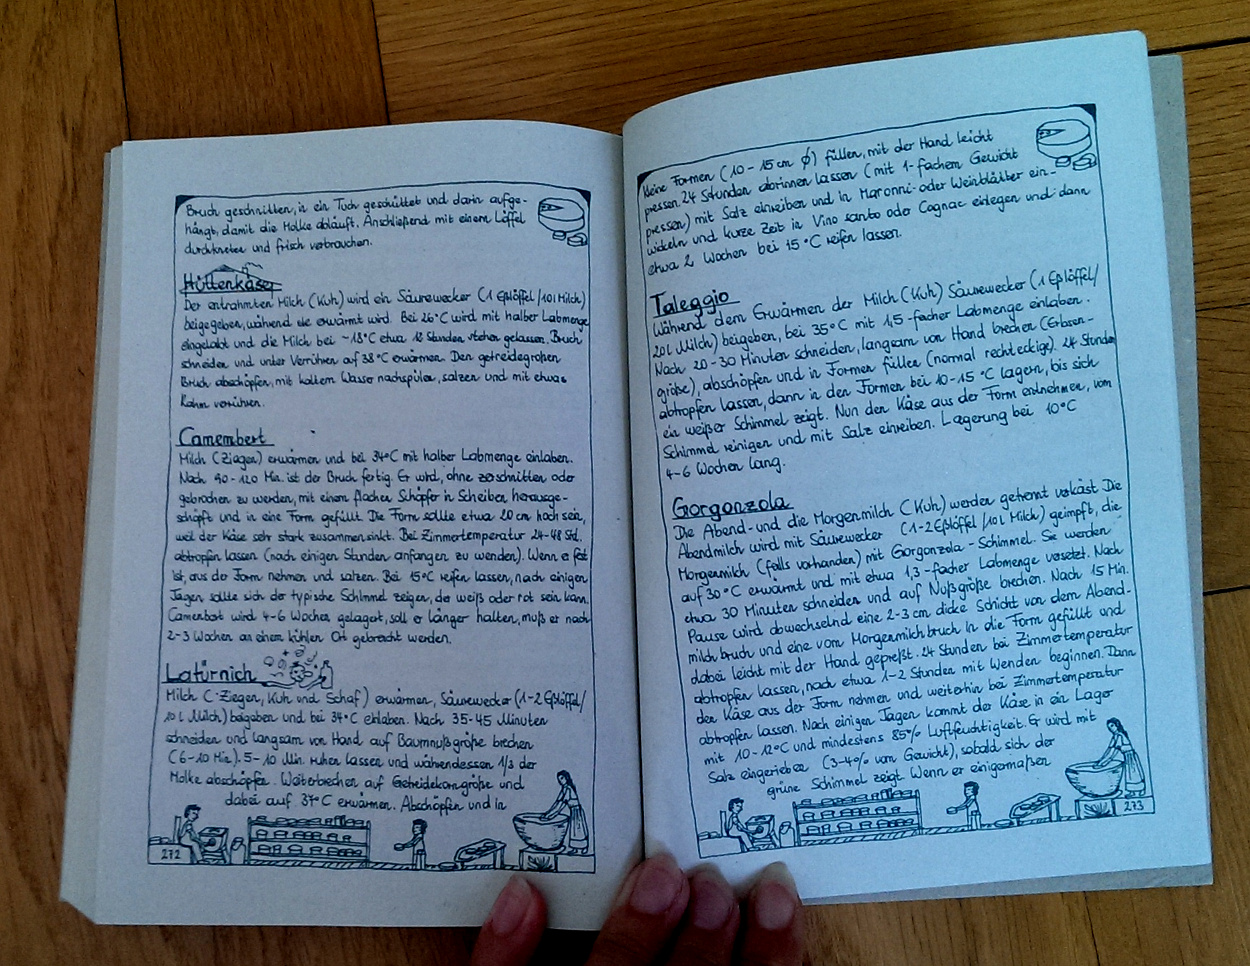 Bruch geschnitten, in ein Tuch geschüttet und darin aufge-
hängt, damit die Molke abläuft. Anschließend mit einem Löffel
durchkneten und frisch verbrauchen.
Hüttenkäse
Der entrahmten Milch (Kuh) wird ein Säurewecker (1 Eßlöffel/10 l Milch)
beigegeben, während sie erwärmt wird. Bei 26°C wird mit halber Labmenge
eingelabt und die Milch bei ~18°C etwa 18 Stunden stehen gelassen. Bruch
schneiden und unter Verrühren auf 38°C erwärmen. Den getreidegroßen
Bruch abschöpfen, mit kaltem Wasser nachspülen, salzen und mit etwas
Rahm verrühren.
Camembert
Milch (Ziegen) erwärmen und bei 34°C mit halber Labmenge einlaben.
Nach 90-120 Min. ist der Bruch fertig. Er wird, ohne zerschnitten oder
gebrochen zu werden, mit einem flachen Schöpfer in Scheiben herausge-
schöpft und in eine Form gefüllt. Die Form sollte etwa 20 cm hoch sein,
weil der Käse sehr stark zusammensinkt. Bei Zimmertemperatur 24-48 Std.
abtropfen lassen (nach einigen Stunden anfangen zu wenden). Wenn er fest
ist, aus der Form nehmen und salzen. Bei 15°C reifen lassen, nach einigen
Tagen sollte sich der typische Schimmel zeigen, der weiß oder rot sein kann.
Camembert wird 4-6 Wochen gelagert, soll er länger halten, muß er nach
2-3 Wochen an einem kühlen Ort gebracht werden.
Latürnich
Milch (Ziegen, Kuh und Schaf) erwärmen, Säurewecker (1-2 Eßlöffel/
10 l Milch) beigeben und bei 34°C einlaben. Nach 35-45 Minuten
schneiden und langsam von Hand auf Baumnußgröße brechen
(6-10 Min). 5-10 Min. ruhen lassen und währendessen 1/3 der
Molke abschöpfen. Weiterbrechen auf Getreidekorngröße und
dabei auf 37°C erwärmen. Abschöpfen und in
272
kleine Formen (10-15 cm ∅) füllen, mit der Hand leicht
pressen. 24 Stunden darinnen lassen (mit 1-fachem Gewicht
pressen) mit Salz einreiben und in Maronni- oder Weinblätter ein-
wickeln und kurze Zeit in Vino santo oder Cognac einlegen und dann
etwa 2 Wochen bei 15°C reifen lassen.
Taleggio
Während dem Erwärmen der Milch (Kuh) Säurewecker (1 Eßlöffel/
20 l Milch) beigeben, bei 35°C mit 1,5-facher Labmenge einlaben.
Nach 20-30 Minuten schneiden, langsam von Hand brechen (Erbsen-
größe), abschöpfen und in Formen füllen (normal rechteckige). 24 Stunden
abtropfen lassen, dann in den Formen bei 10-15°C lagern, bis sich
ein weißer Schimmel zeigt. Nun den Käse aus der Form entnehmen, vom
Schimmel reinigen und mit Salz einreiben. Lagerung bei 10°C
4-6 Wochen lang.
Gorgonzola
Die Abend- und die Morgenmilch (Kuh) werden getrennt verkäst. Die
Abendmilch wird mit Säurewecker (1-2 Eßlöffel/10 l Milch) geimpft, die
Morgenmilch (falls vorhanden) mit Gorgonzola-Schimmel. Sie werden
auf 30°C erwärmt und mit etwa 1,3-facher Labmenge versetzt. Nach
etwa 30 Minuten schneiden und auf Nußgröße brechen. Nach 15 Min.
Pause wird abwechselnd eine 2-3 cm dicke Schicht von dem Abend-
milchbruch und eine vom Morgenmilchbruch in die Form gefüllt und
dabei leicht mit der Hand gepreßt. 24 Stunden bei Zimmertemperatur
abtropfen lassen, nach etwa 1-2 Stunden mit Wenden beginnen. Dann
den Käse aus der Form nehmen und weiterhin bei Zimmertemperatur
abtropfen lassen. Nach einigen Tagen kommt der Käse in ein Lager
mit 10-12°C und mindestens 85% Luftfeuchtigkeit. Er wird mit
Salz eingerieben (3-4% vom Gewicht), sobald sich der
grüne Schimmel zeigt. Wenn er einigermaßen
273